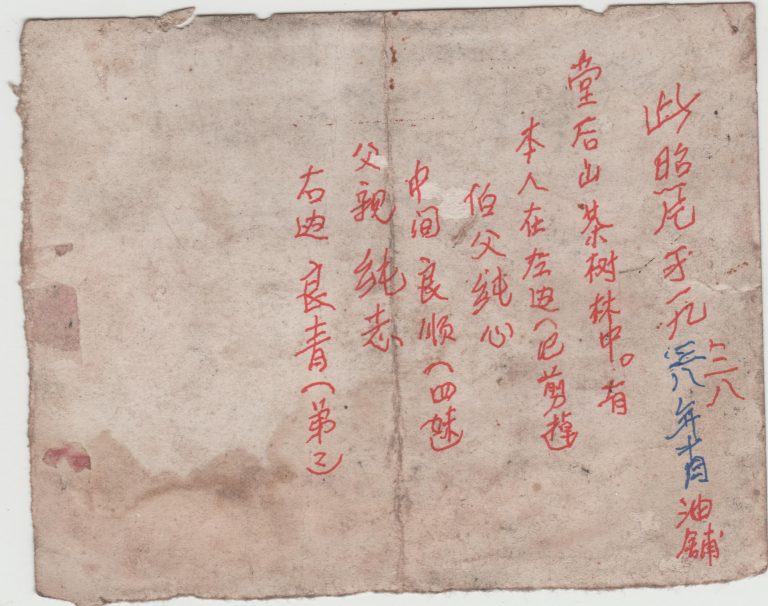 此照片于一九三八年十月油铺
三八
堂后山茶树林中。有
本人在左边(已剪掉)
伯父纯心
中间良顺(四妹)
父親 纯志
右边 良青(弟)